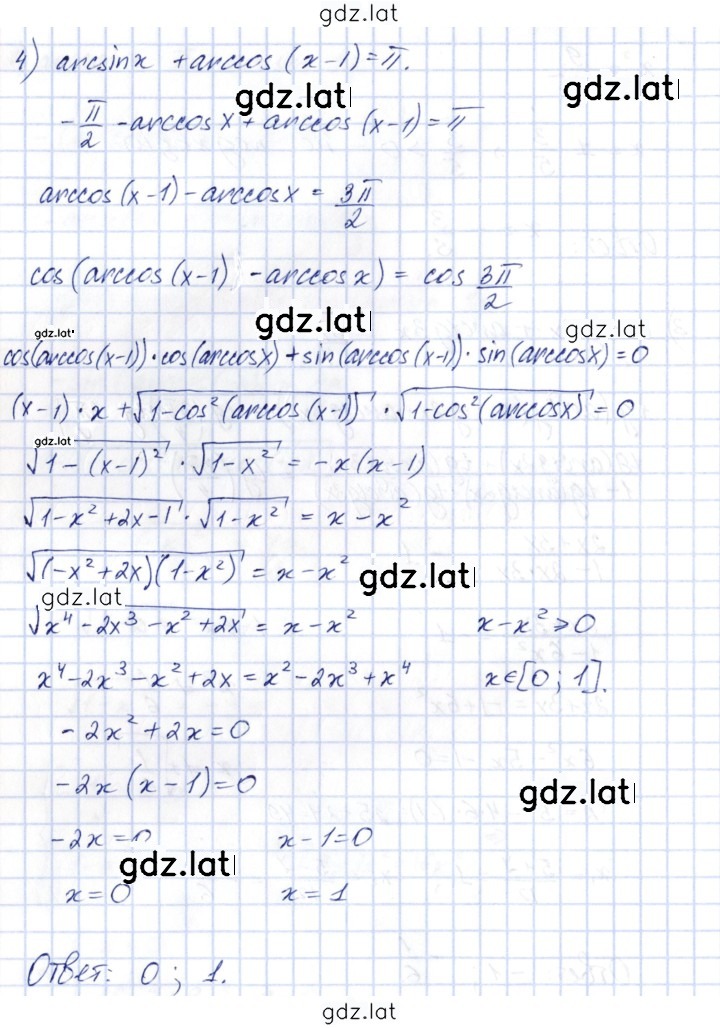 gdz.lat
4) arcsinx + arccos (x-1) = π.
gdz.lat
gdz.lat
-π/2 - arccos x + arccos (x-1) = π
arccos (x-1) - arccos x = 3π/2
cos(arccos (x-1) - arccos x) = cos 3π/2
gdz.lat
gdz.lat
gdz.lat
cos(arccos(x-1)) · cos(arccosx) + sin(arccos(x-1)) · sin(arccosx) = 0
(x-1) · x + √(1-cos²(arccos(x-1))) · √(1-cos²(arccosx)) = 0
gdz.lat
√(1-(x-1)²) · √(1-x²) = -x(x-1)
√(1-x²+2x-1) · √(1-x²) = x-x²
√((-x²+2x)(1-x²)) = x-x²
gdz.lat
gdz.lat
√(x⁴-2x³-x²+2x) = x-x² x-x²⩾0
x⁴-2x³-x²+2x = x²-2x³+x⁴ x∈[0;1].
-2x²+2x=0
-2x(x-1)=0
gdz.lat
-2x=0 x-1=0
gdz.lat
x=0 x=1
Ответ: 0; 1.
gdz.lat